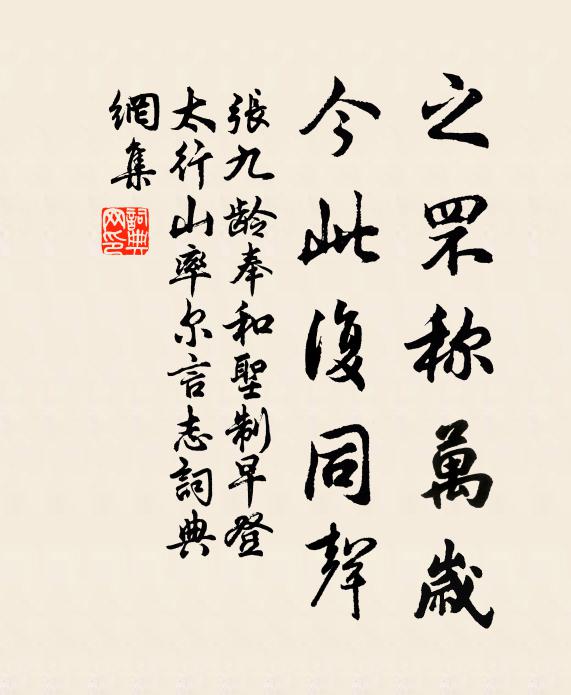 之罘称萬歲
今此復同聲
張九龄奉和聖制早登
太行山率尔言志詞典
網集
詞典网印